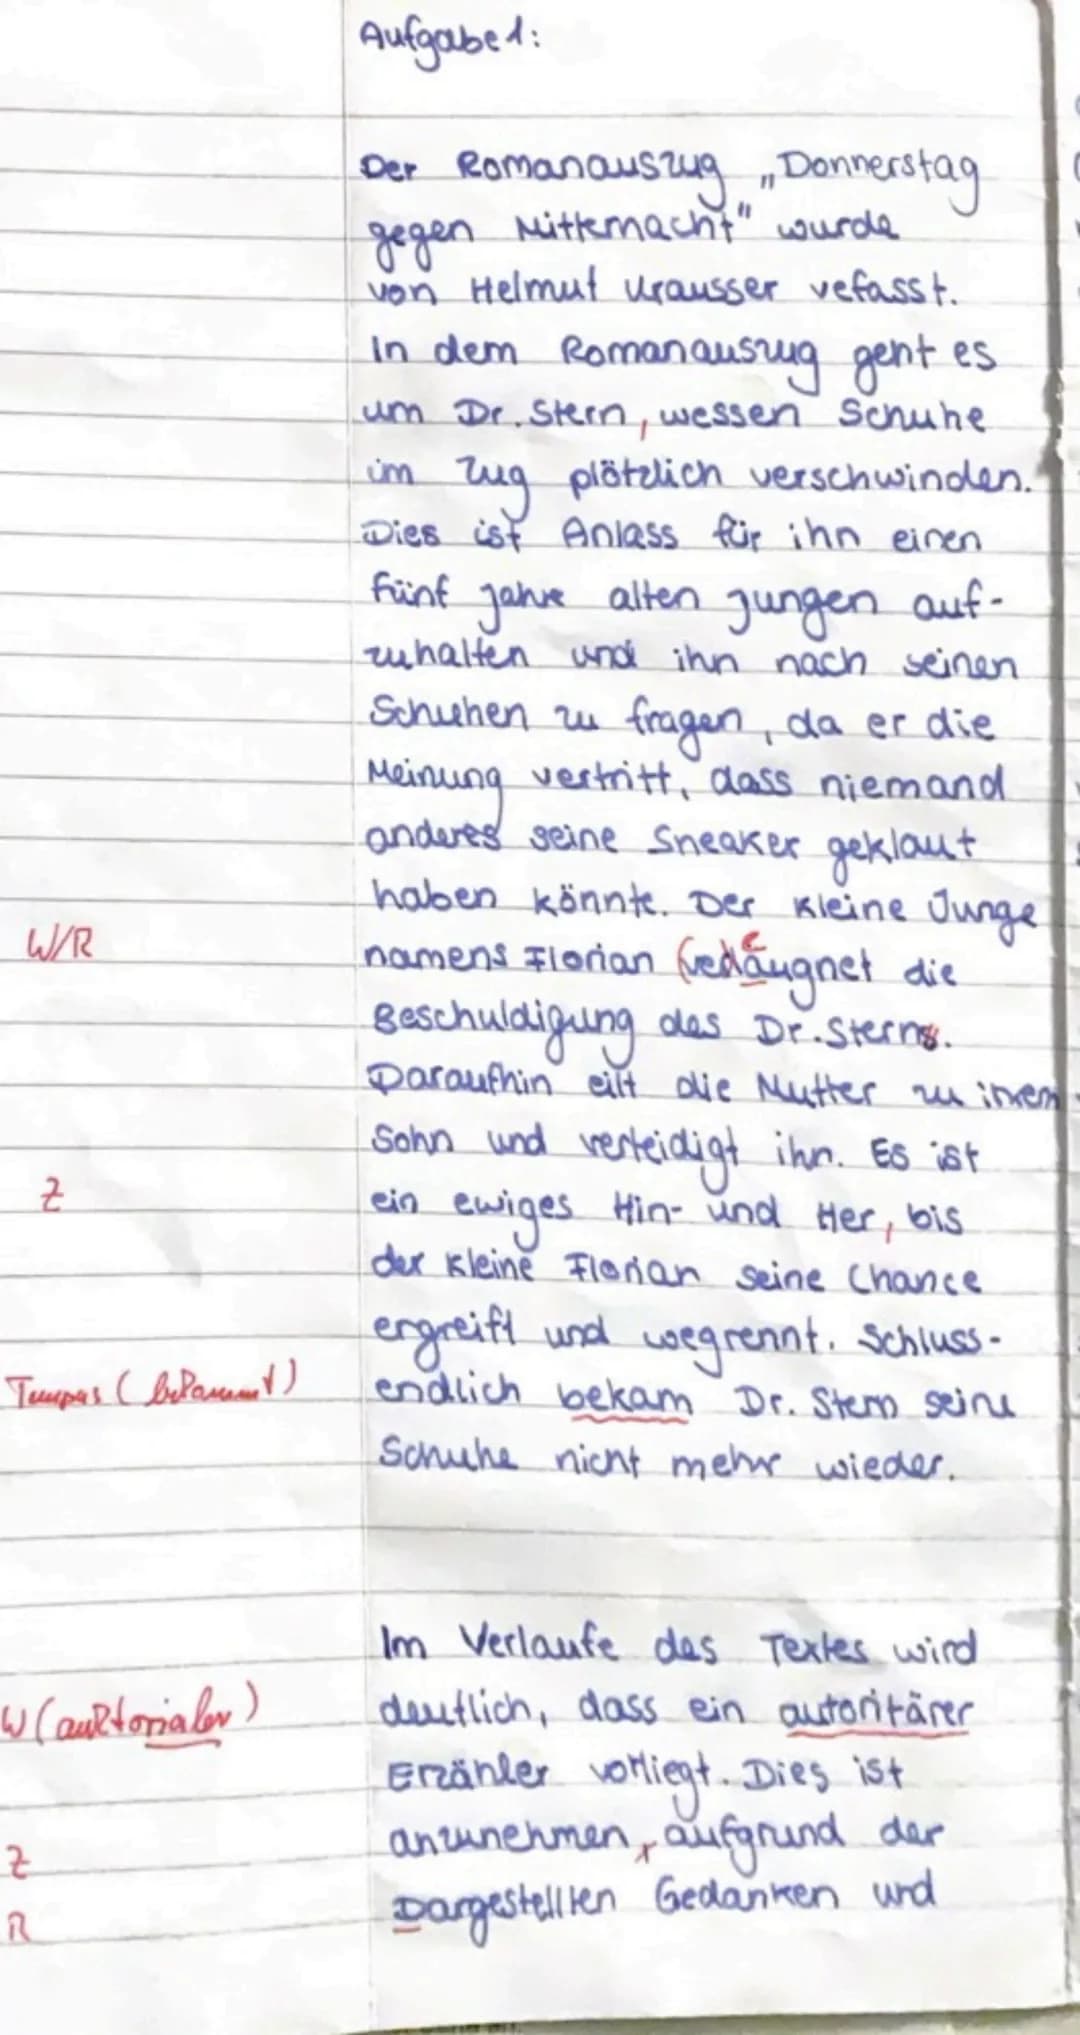 Aufgabe 1:
Der Romanauszug „Donnerstag
gegen Mitternacht" wurde
von Helmut Krausser vefasst.
In dem Romanauszug geht es
um Dr. Stern, wessen Schuhe
im Zug plötzlich verschwinden.
Dies ist Anlass für ihn einen
fünf jahre alten jungen auf-
zuhalten und ihn nach seinen
Schuhen zu fragen, da er die
Meinung vertritt, dass niemand
anderes seine Sneaker geklaut
haben könnte. Der kleine Junge
W/R namens Florian die
Beschuldigung des Dr. Sterns.
Daraufhin eilt die Mutter zu ihrem
Sohn und verteidigt ihn. Es ist
Z ein ewiges Hin- und Her, bis
der kleine Florian seine Chance
ergreift und wegrennt. Schluss-
Tempus (bekommt) endlich bekam Dr. Stern seine
Schuhe nicht mehr wieder.
Im Verlaufe des Textes wird
W (auktorialer) deutlich, dass ein autoritärer
Erzähler vorliegt. Dies ist
Z anzunehmen, aufgrund der
R Dargestellten Gedanken und